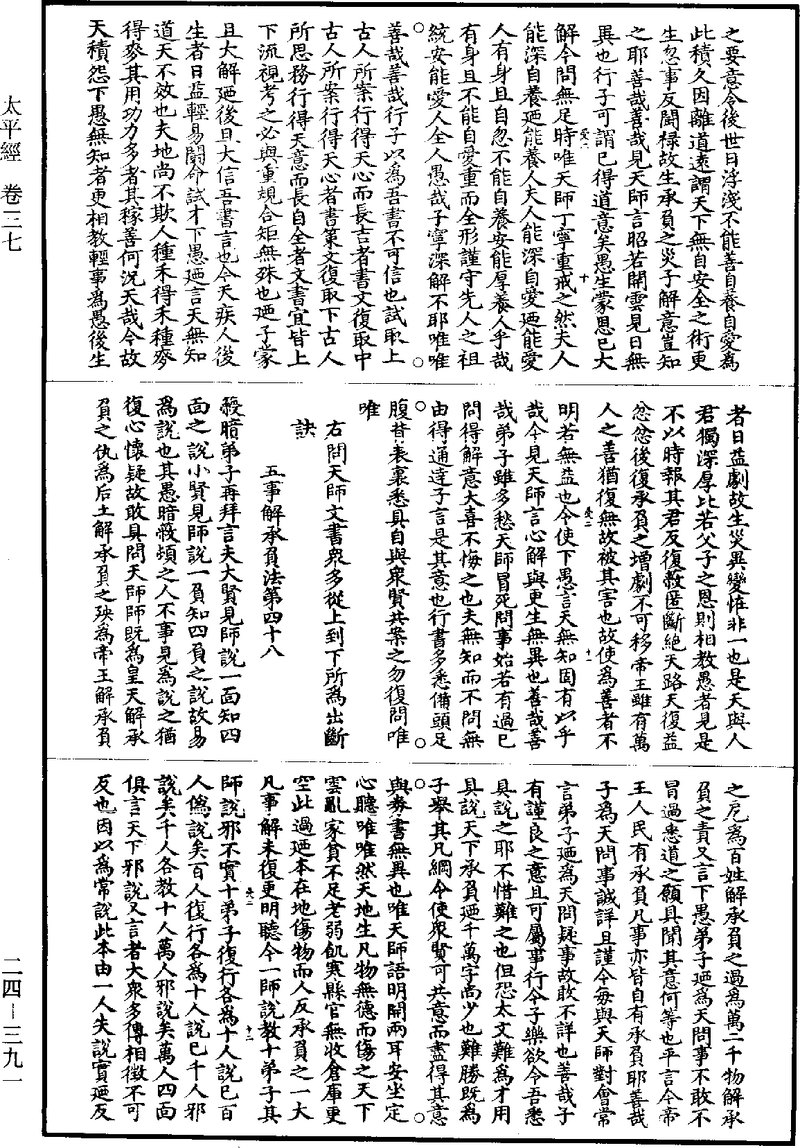 太平經 卷三七
二四—三九一
之要意令後世日浮淺不能善自養自愛為
此積久因離道遠謂天下無自安全之術更
生忽事反鬭祿故生承負之災子解意豈知
之耶善哉善哉見天師言昭若開雲見日無
異也行子可謂已得道意矣愚生蒙恩已大
解今問無足時唯天師丁寧重戒之然夫人
能深自養迺能養人夫人能深自愛迺能愛
人有身且自忽不能自養安能厚養人乎哉
有身且不能自愛重而全形謹守先人之祖
統安能愛人全人愚哉子寧深解不耶唯唯
善哉善哉行子以為吾書不可信也試取上
古人所案行得天心而長吉者書文復取中
古人所案行得天心者書策文復取下古人
所思務行得天意而長自全者文書宜皆上
下流視考之必與重規合矩無殊也迺子蒙
且大解迺後且大信吾書言也今天疾人後
生者日益輕易鬭命試才下愚迺言天無知
道天不效也夫地尚不欺人種禾得禾種麥
得麥其用功力多者其稼善何況天哉今故
天積怨下愚無知者更相教輕事為愚後生
者日益劇故生災異變怪非一也是天與人
君獨深厚比若父子之恩則相教愚者見是
不以時報其君反復蔽匿斷絕天路天復益
忿忿後復承負之增劇不可移帝王雖有萬
人之善猶復無故被其害也故使為善者不
明若無益也今使下愚言天無知固有以乎
哉今見天師言心解與更生無異也善哉善
哉弟子雖多愁天師冒死問事始若有過已
問得解意大喜不悔之也夫無知而不問無
由得通達子言是其意也行書多悉備頭足
腹背表裏悉具自與眾賢共案之勿復問唯
唯
右問天師文書眾多從上到下所為出斷
訣
五事解承負法第四十八
蔽暗弟子再拜言夫大賢見師說一面知四
面之說小賢見師說一負知四負之說故易
為說也其愚暗蔽頓之人不事見為說之猶
復心懷疑故敢具問天師師既為皇天解承
負之仇為后土解承負之殃為帝王解承負
之厄為百姓解承負之過為萬二千物解承
負之責又言下愚弟子迺為天問事不敢不
冒過悉道之願具聞其意何等也平言今帝
王人民有承負凡事亦皆自有承負耶善哉
子為天問事誠詳且謹今每與天師對會常
言弟子迺為天問疑事故敢不詳也善哉子
有謹良之意且可屬事行今子樂欲令吾悉
具說之耶不惜難之也但恐太文難為才用
具說天下承負迺千萬字尚少也難勝既為
子舉其凡綱令使眾賢可共意而盡得其意
與券書無異也唯天師語明開兩耳安坐定
心聽唯唯然天地生凡物無德而傷之天下
雲亂家貧不足老弱飢寒縣官無收倉庫更
空此過迺本在地傷物而人反承負之一大
凡事解未復更明聽今一師說教十弟子其
師說邪不實十弟子復行各為十人說已百
人偽說矣百人復行各為十人說已千人邪
說矣千人各教十人萬人邪說矣萬人四面
俱言天下邪說又言者大眾多傳相徵不可
反也因以為常說此本由一人失說實迺反